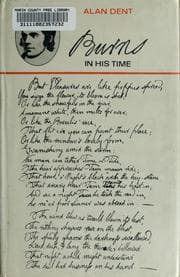 MARIN COUNTY FREE LIBRARY
31111002357232
ALAN DENT
Burns
IN HIS TIME
But Pleasures are like poppies spread,
You seize the flower, its bloom is shed;
Or like the snowfall in the river,
A moment white, then melts for ever;
Or like the Borealis race,
That flit ere you can point their place;
Or like the rainbow's lovely form,
Evanishing amid the storm
Nae man can tether Time or Tide,
The hour approaches Tam maun ride;
That hour, o' night's black arch the key-stane,
That dreary hour Tam
And sic a night he taks the road in,
As ne'er poor sinner was abroad in.
The wind blew as twad blawn its last;
The rattling showers rose on the blast;
The speedy gleams the darkness swallowed
Loud, deep, & lang the thunder bellowed
That night a child might understand
The deil had business on his hand